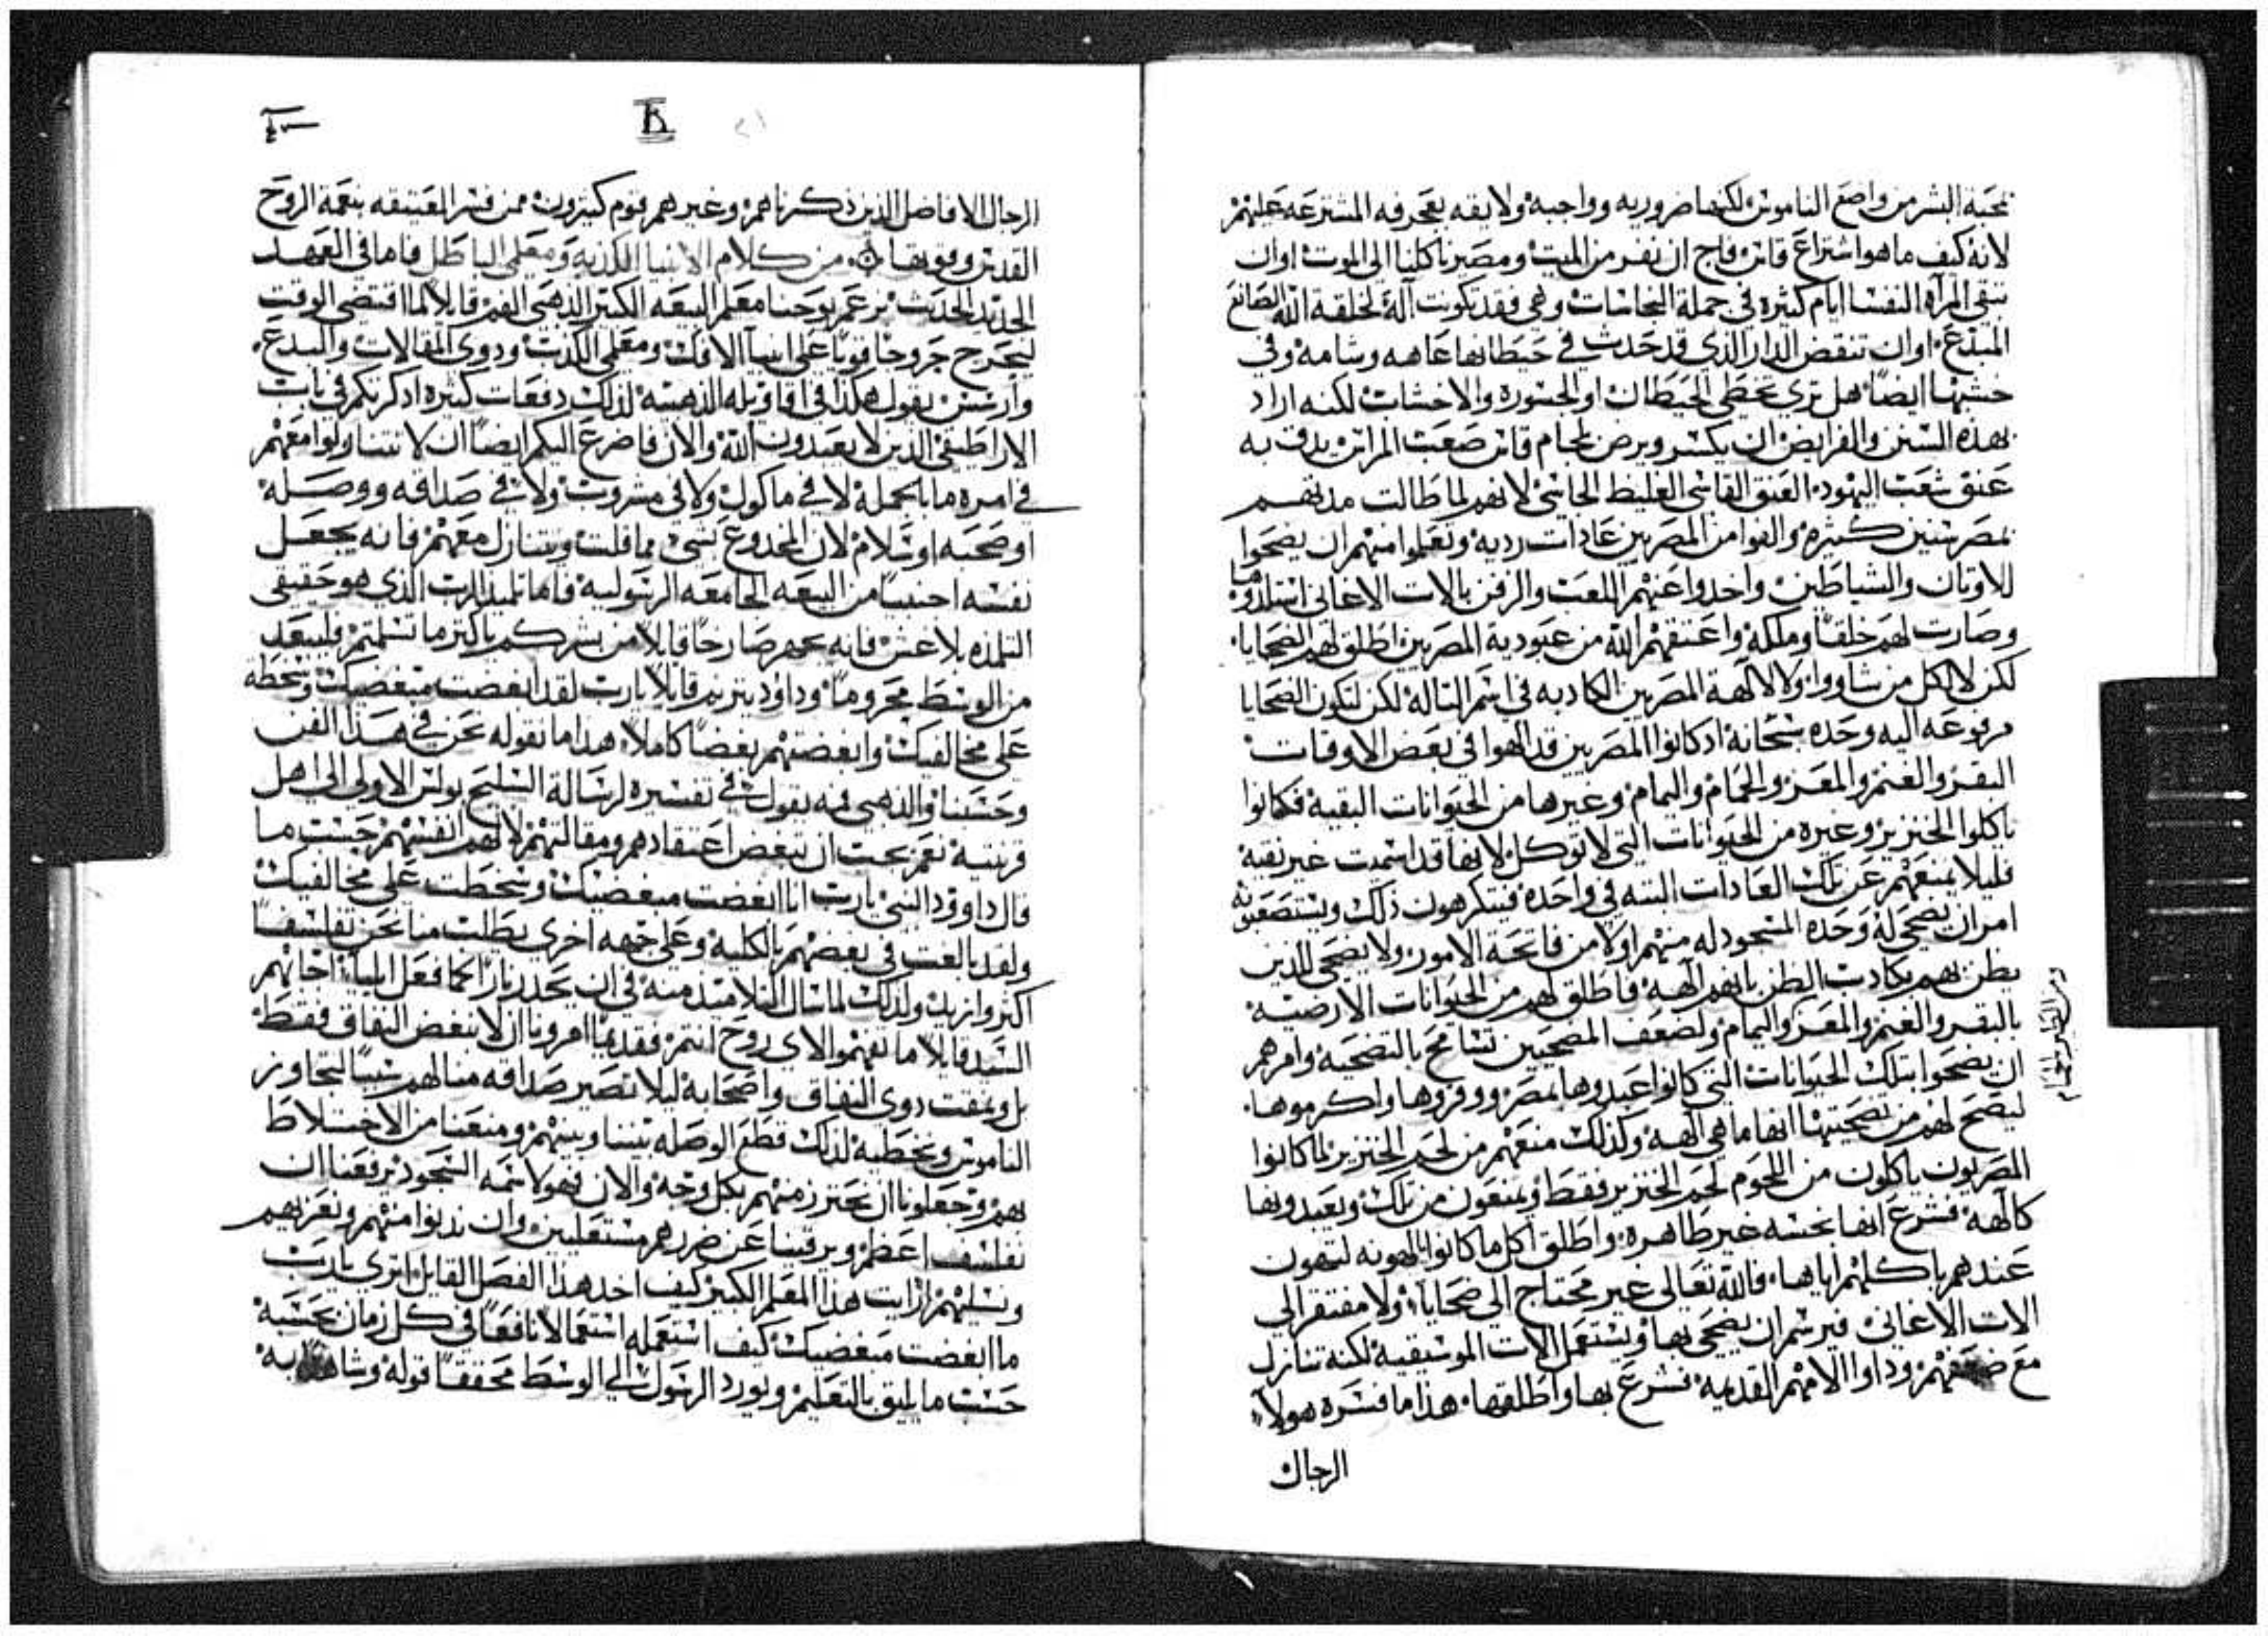 محبة البشر من واضع الناموس لكنها ضروريه وواجبه ولايقه بعجرفه المشترعه عليهم
لانه كيف ما هو اشتراع قاس فاج ان نفر من الميت ومصيرنا كلنا الى الموت اوان
تبقى المرآه النفسا ايام كثيره في جملة النجاسات وهي فقد تكونت آلة لخلقة الله الصانع
المبدع اوان تنقض الدار الذي قد حدث في حيطانها عاهه وشامه وفي
خشبها ايضاً هل تري تخطى الحيطان او الجسوره والاخشاب لكنه اراد
بهذه السنن والفرايض ان يكسر ويرض بلجام قاس صعب المراس يدق به
عنق شعب اليهود العنق القاسى الغليظ الجاسى لانهم لما طالت مدتهم
بمصر سنين كثيره والفوا من المصريين عادات رديه وتعلموا منهم ان يضحوا
للاوتان والشياطين واخدوا عنهم اللعب والرفس بالات الاغانى استلدوها
وصارت لهم خلقاً وملكه واعتقهم الله من عبودية المصريين اطلق لهم الضحايا
لكن لا لكل من شاووا ولا لالهة المصريين الكادبه في اسم التاله لكن لتكون الضحايا
مرفوعه اليه وحده سبحانه ادكانوا المصريين قد الهوا في بعض الاوقات
البقر والغنم والمعز والحمام واليمام وغيرها من الحيوانات البقيه فكانوا
ياكلوا الخنزير وغيره من الحيوانات التي لا توكل لانها قد اسميت غير نقيه
فليلا يمنعهم عن تلك العادات البته في واحده فيتكرهون ذلك ويستصعبونه
امر ان يضحى له وحده المسجود له منهم اولا من فاتحة الامور ولا يضحى للذين
يظن بهم بكادب الظن بانهم آلهة فاطلق لهم من الحيوانات الارضيه
بالبقر والغنم والمعز واليمام ولضعف المضحيين تسامح بالتضحيه وامرهم
ومن الطير والحمام
ان يضحوا بتلك الحيوانات التى كانوا عبدوها بمصر ووقروها واكرموها
ليضح لهم من تضحيتها انها ما هى آلهه وكذلك منعهم من لحم الخنزير لما كانوا
المصريون ياكلون من اللحوم لحم الخنزير فقط ويمنعون من تلك ويعبدونها
كآلهة فشرع انها نجسه غير طاهره واطلق اكل ما كانوا يالهونه لتهون
عندهم باكلهم اياها فالله تعالى غير محتاج الى ضحايا ولا مفتقر الي
الات الاغانى فيرسم ان يضحى بها ويستعمل الات الموسيقيه لكنه تنازل
مع ضعفهم وداوا الامهم القديمه فشرع بها واطلقها هذا ما فسره هولآ
الرجال
الرجال الافاضل الذين ذكرناهم وغيرهم قوم كثيرون ممن فسر العتيقه بنعمة الروح
القدس وقوتها من كلام الانبيا الكذبه ومعلمي الباطل فاما في العهد
الجديد الحديث نزعم يوحنا معلم البيعه الكبير الذهبى الفم قايلاً لما اقتضى الوقت
ليجرح جروحا قويا على انبيآ الافك ومعلمي الكذب ودوى المقالات والبدع
واريسس يقول هكذا في اقاويله الذهبيه لذلك دفعات كثيره ادكرتكم في باب
الاراطيقى الذين لا يعبدون الله والان فاضرع اليكم ايضاً ان لا تتناولوا معهم
في امره ما بالجملة لا في ماكول ولا في مشروب ولا في صداقه ووصله
او صحبه او سلام لان المخدوع بشئ مما قلت ويتنازل معهم فانه يجعل
نفسه اجنبياً من البيعه الجامعه الرسوليه فاما تلميذ الرب الذي هو حقيقى
التلمذه بلا غش فانه يجهر صارخاً قايلا من بشركم باكثر ما تسلمتم فليبعد
من الوسط مجروماً وداوْد يترنم قايلاً يارب لقد ابغضت مبغضيك وسخطه
على مخالفيك وابغضتهم بغضاً كاملاً هدا ما نقوله نحن في هذا الفن
وحسبنا والذهبى فمه يقول في تفسيره لرسالة السليح بولس الاولى الى اهل
قرنتيه نعم يجب ان نبغض اعتقادهم ومقالتهم لا لهم انفسهم حسب ما
قال داوود النبي يارب انا ابغضت مبغضيك وسخطت على مخالفيك
ولقد بالغت في بغضهم بالكليه وعلى جهه اخرى يطلب منا نحن تفلسفاً
اكثر وازيد ولذلك لما سال التلاميد منه في ان يحدر ناراً كما فعل ايليآ اجابهم
السيد قايلا ما تفهموا لاى روح انتم فقديماً امرونا ان لا نبغض النفاق فقط
بل ونمقت دوى النفاق واصحابه ليلا تصير صداقه منا لهم سبباً لتجاوز
الناموس وتخطيه لذلك قطع الوصله بيننا وبينهم ومنعنا من الاختلاط
بهم وجعلونا ان نحترز منهم بكل وجه والان فهو لاسمه السجود يرفعنا ان
نفلسف اعظم ويرقينا عن ضررهم مستعلين وان ندنوا منهم ونعزيهم
ونسليهم ارايت هذا المعلم الكبير كيف اخد هذا الفصل القايل اترى يارب
ما ابغضت مبغضيك كيف استعمله استعمالا نافعاً في كل زمان بحسبه
حسب ما يليق بالتعليم ويورد الرسول الي الوسط محققاً قوله وشاهداً به